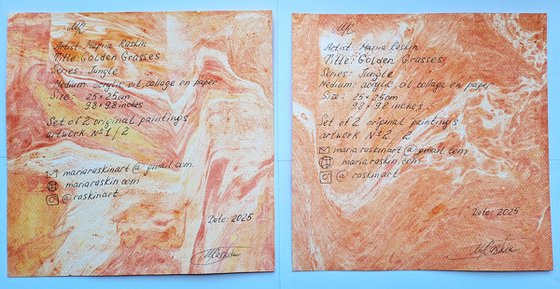 MR
Artist: Mariia Raskin
Title: Golden Grasses
Series: Jungle
Medium: acrylic, oil collage on paper
Size: 25×25cm
9.8×9.8 inches
Set of 2 original paintings
artwork №1/2
mariaraskinart@gmail.com
mariaraskin.com
@raskinart
Date: 2025
MRaskin
MR
Artist: Mariia Raskin
Title: Golden Grasses
Series: Jungle
Medium: acrylic, oil collage on paper
Size: 25×25cm
9.8×9.8 inches
Set of 2 original paintings
artwork №2/2
mariaraskinart@gmail.com
mariaraskin.com
@raskinart
Date: 2025
MRaskin